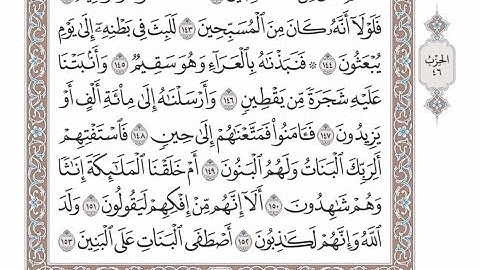 فَلَوْلَآ أَنَّهُۥ كَانَ مِنَ ٱلْمُسَبِّحِينَ ١٤٣ لَلَبِثَ فِى بَطْنِهِۦٓ إِلَىٰ يَوْمِ
يُبْعَثُونَ ١٤٤ ۞ فَنَبَذْنَٰهُ بِٱلْعَرَآءِ وَهُوَ سَقِيمٌ ١٤٥ وَأَنۢبَتْنَا
عَلَيْهِ شَجَرَةً مِّن يَقْطِينٍ ١٤٦ وَأَرْسَلْنَٰهُ إِلَىٰ مِا۟ئَةِ أَلْفٍ أَوْ
يَزِيدُونَ ١٤٧ فَـَٔامَنُوا۟ فَمَتَّعْنَٰهُمْ إِلَىٰ حِينٍ ١٤٨ فَٱسْتَفْتِهِمْ
أَلِرَبِّكَ ٱلْبَنَاتُ وَلَهُمُ ٱلْبَنُونَ ١٤٩ أَمْ خَلَقْنَا ٱلْمَلَٰٓئِكَةَ إِنَٰثًا
وَهُمْ شَٰهِدُونَ ١٥٠ أَلَآ إِنَّهُم مِّنْ إِفْكِهِمْ لَيَقُولُونَ ١٥١ وَلَدَ
ٱللَّهُ وَإِنَّهُمْ لَكَٰذِبُونَ ١٥٢ أَصْطَفَى ٱلْبَنَاتِ عَلَى ٱلْبَنِينَ ١٥٣
الحِزْبُ
٤٦